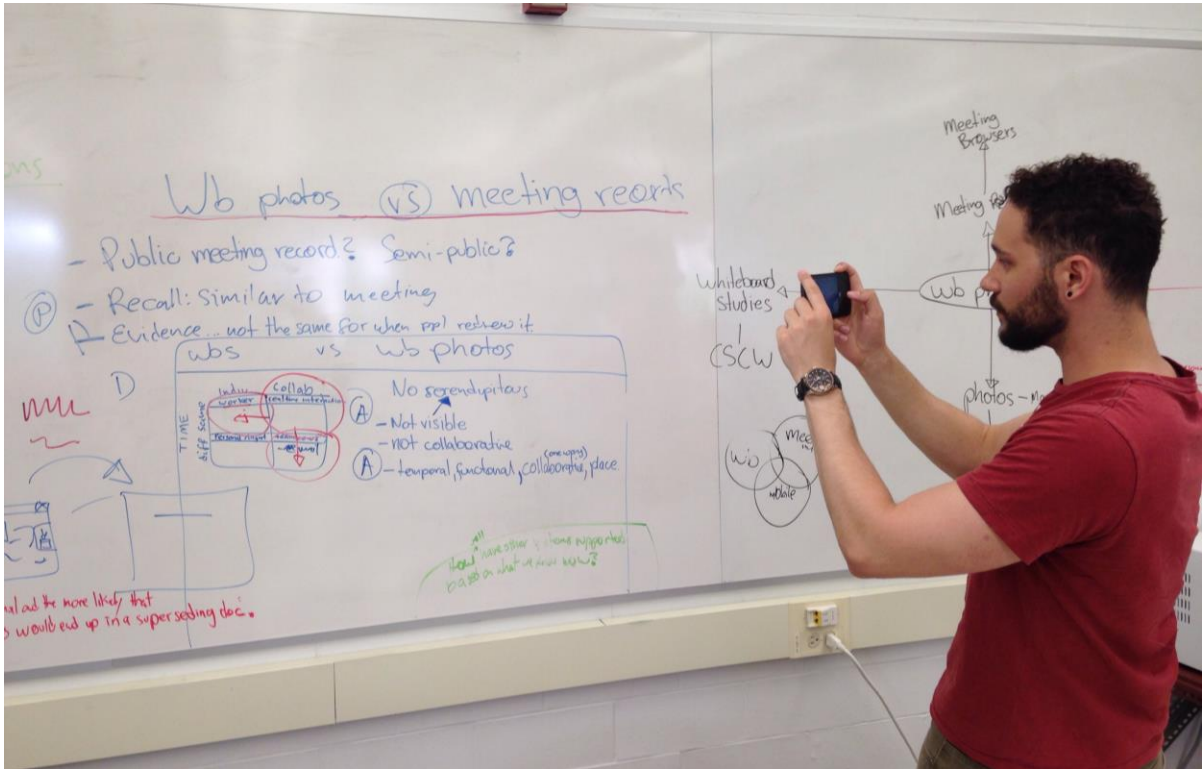 ons
Wb photos vs meeting reorts
- Public meeting record? Semi-public?
P - Recall: similar to meeting
- Evidence... not the same for when ppl redrew it
wbs vs wb photos
D
TIME
diff same
Indiv Collab
worker realtime
No serendipitous
A
- Not visible
- not collaborative
A - temporal, functional, collaborative, place
based on what we know now?
and the more likely that
would end up in a superseding doc.
Meeting
Browsers
Meeting
Whiteboard
Studies
wb
CSCW
photos -
wb
mee
mobile